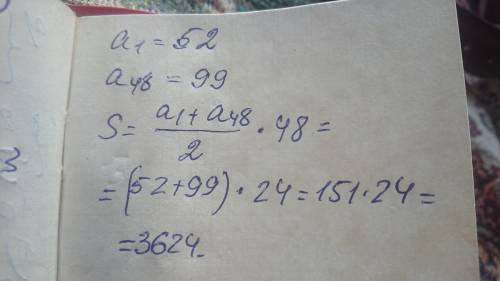 a₁ = 52
a₄₈ = 99
S = (a₁ + a₄₈)/2 · 48 =
= (52+99) · 24 = 151 · 24 =
= 3624.